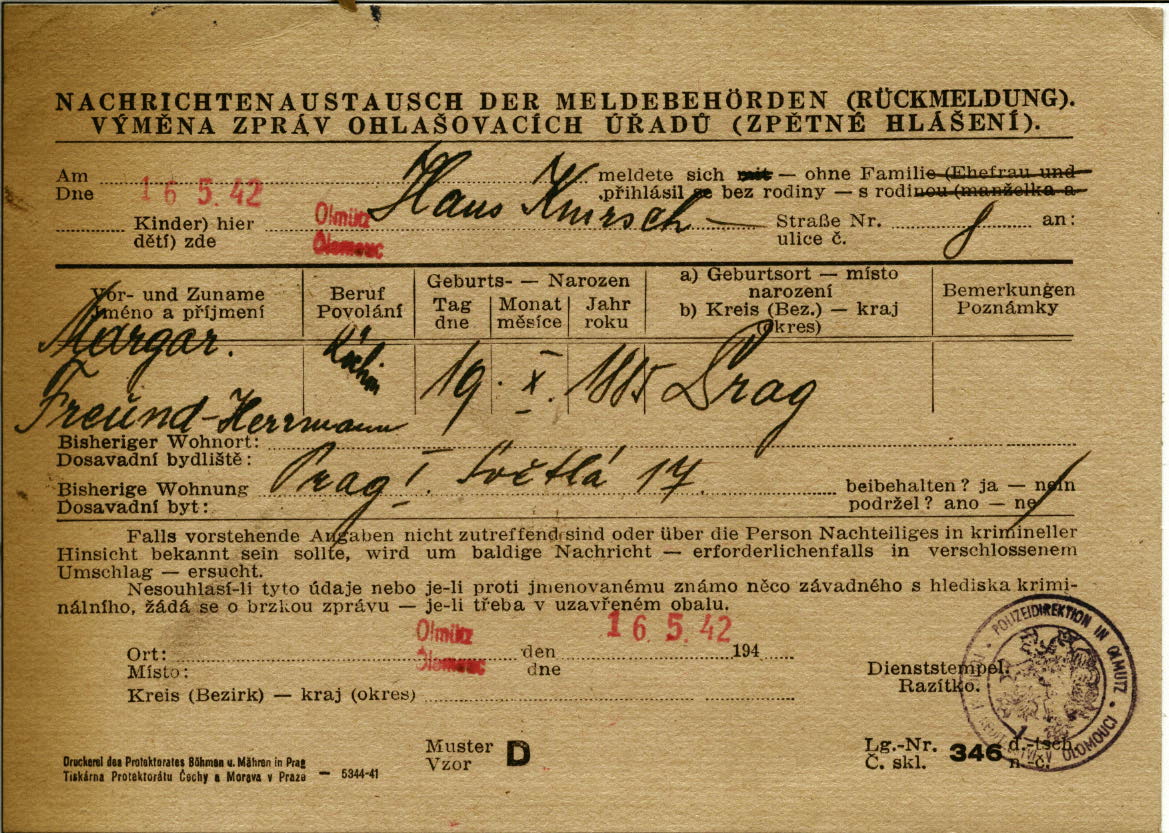 NACHRICHTENAUSTAUSCH DER MELDEBEHÖRDEN (RÜCKMELDUNG).
VÝMĚNA ZPRÁV OHLAŠOVACÍCH ÚŘADŮ (ZPĚTNÉ HLÁŠENÍ).
Am 16 5. 42 meldete sich mit — ohne Familie (Ehefrau und
Dne přihlásil se bez rodiny — s rodinou (manželka a
Kinder) hier Olmütz Haus Straße Nr. 8 an:
děti) zde Olomouc ulice č.
Vor- und Zuname Beruf Geburts- — Narozen a) Geburtsort — místo Bemerkungen
Jméno a příjmení Povolání Tag Monat Jahr narození Poznámky
dne měsíce roku b) Kreis (Bez.) — kraj
(okres)
Margar. Köchin 19. X. 1885 Prag
Freund-Herrmann
Bisheriger Wohnort:
Dosavadní bydliště: Prag I. Světlá 17.
Bisherige Wohnung beibehalten? ja — nein
Dosavadní byt: podržel? ano — ne
Falls vorstehende Angaben nicht zutreffend sind oder über die Person Nachteiliges in krimineller
Hinsicht bekannt sein sollte, wird um baldige Nachricht — erforderlichenfalls in verschlossenem
Umschlag — ersucht.
Nesouhlasí-li tyto údaje nebo je-li proti jmenovanému známo něco závadného s hlediska krimi-
nálního, žádá se o brzkou zprávu — je-li třeba v uzavřeném obalu.
Ort: Olmütz den 16. 5. 42 194
Místo: Olomouc dne
Kreis (Bezirk) — kraj (okres)
Dienststempel.
Razítko.
POLIZEIDIREKTION IN OLMÜTZ
V OLOMOUCI
Muster D
Vzor
Lg.-Nr. 346 d.-tsch.
Č. skl. n.-č.
Druckerei des Protektorates Böhmen u. Mähren in Prag
Tiskárna Protektorátu Čechy a Morava v Praze — 5344-41